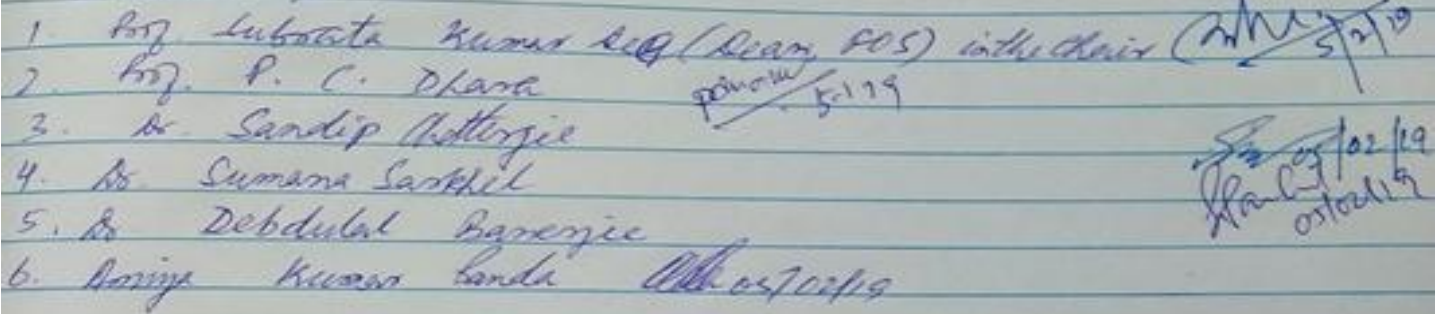 1. Prof. Subrata Kumar De (Dean, FOS) in the Chair 5/2/19
2. Prof. P. C. Dhara
3. Dr. Sandip Chatterjee
4. Dr. Sumana Sarkhel 05/02/19
5. Dr Debdulal Banerjee 05/02/19
6. Amiya Kumar Panda 05/02/19